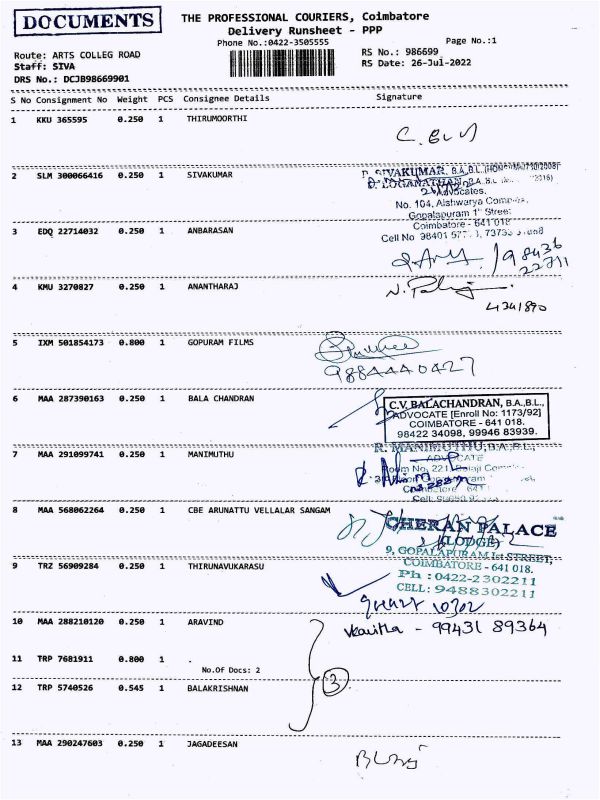 DOCUMENTS
THE PROFESSIONAL COURIERS, Coimbatore
Delivery Runsheet - PPP
Phone No.:0422-3505555
Page No.:1
Route: ARTS COLLEG ROAD
RS No.: 986699
Staff: SIVA
RS Date: 26-Jul-2022
DRS No.: DCJB98669901
S No Consignment No Weight PCS Consignee Details Signature
1 KKU 365595 0.250 1 THIRUMOORTHI
2 SLM 300066416 0.250 1 SIVAKUMAR
SIVAKUMAR, B.A.,B.L.,
LOGANATHAN
Advocates.
No. 104, Aishwarya Complex,
Gopalapuram 1st Street
Coimbatore - 641 018
3 EDQ 22714032 0.250 1 ANBARASAN
Cell No 98401
98436
22711
4 KMU 3270827 0.250 1 ANANTHARAJ
4341890
5 IXM 501854173 0.800 1 GOPURAM FILMS
9884440427
6 MAA 287390163 0.250 1 BALA CHANDRAN
C.V. BALACHANDRAN, B.A.,B.L.,
ADVOCATE [Enroll No: 1173/92]
COIMBATORE - 641 018.
98422 34098, 99946 83939.
7 MAA 291099741 0.250 1 MANIMUTHU
R. MANIMUTHU,B.A.,B.L.,
ADVOCATE
Room No, 221, Balaji
8 MAA 568062264 0.250 1 CBE ARUNATTU VELLALAR SANGAM
CHERAN PALACE
(LODGE)
9, GOPALAPURAM Ist STREET,
COIMBATORE - 641 018.
9 TRZ 56909284 0.250 1 THIRUNAVUKARASU
Ph : 0422-2302211
CELL: 9488302211
10 MAA 288210120 0.250 1 ARAVIND
- 99431 89364
11 TRP 7681911 0.800 1 .
No.Of Docs: 2
12 TRP 5740526 0.545 1 BALAKRISHNAN
3
13 MAA 290247603 0.250 1 JAGADEESAN